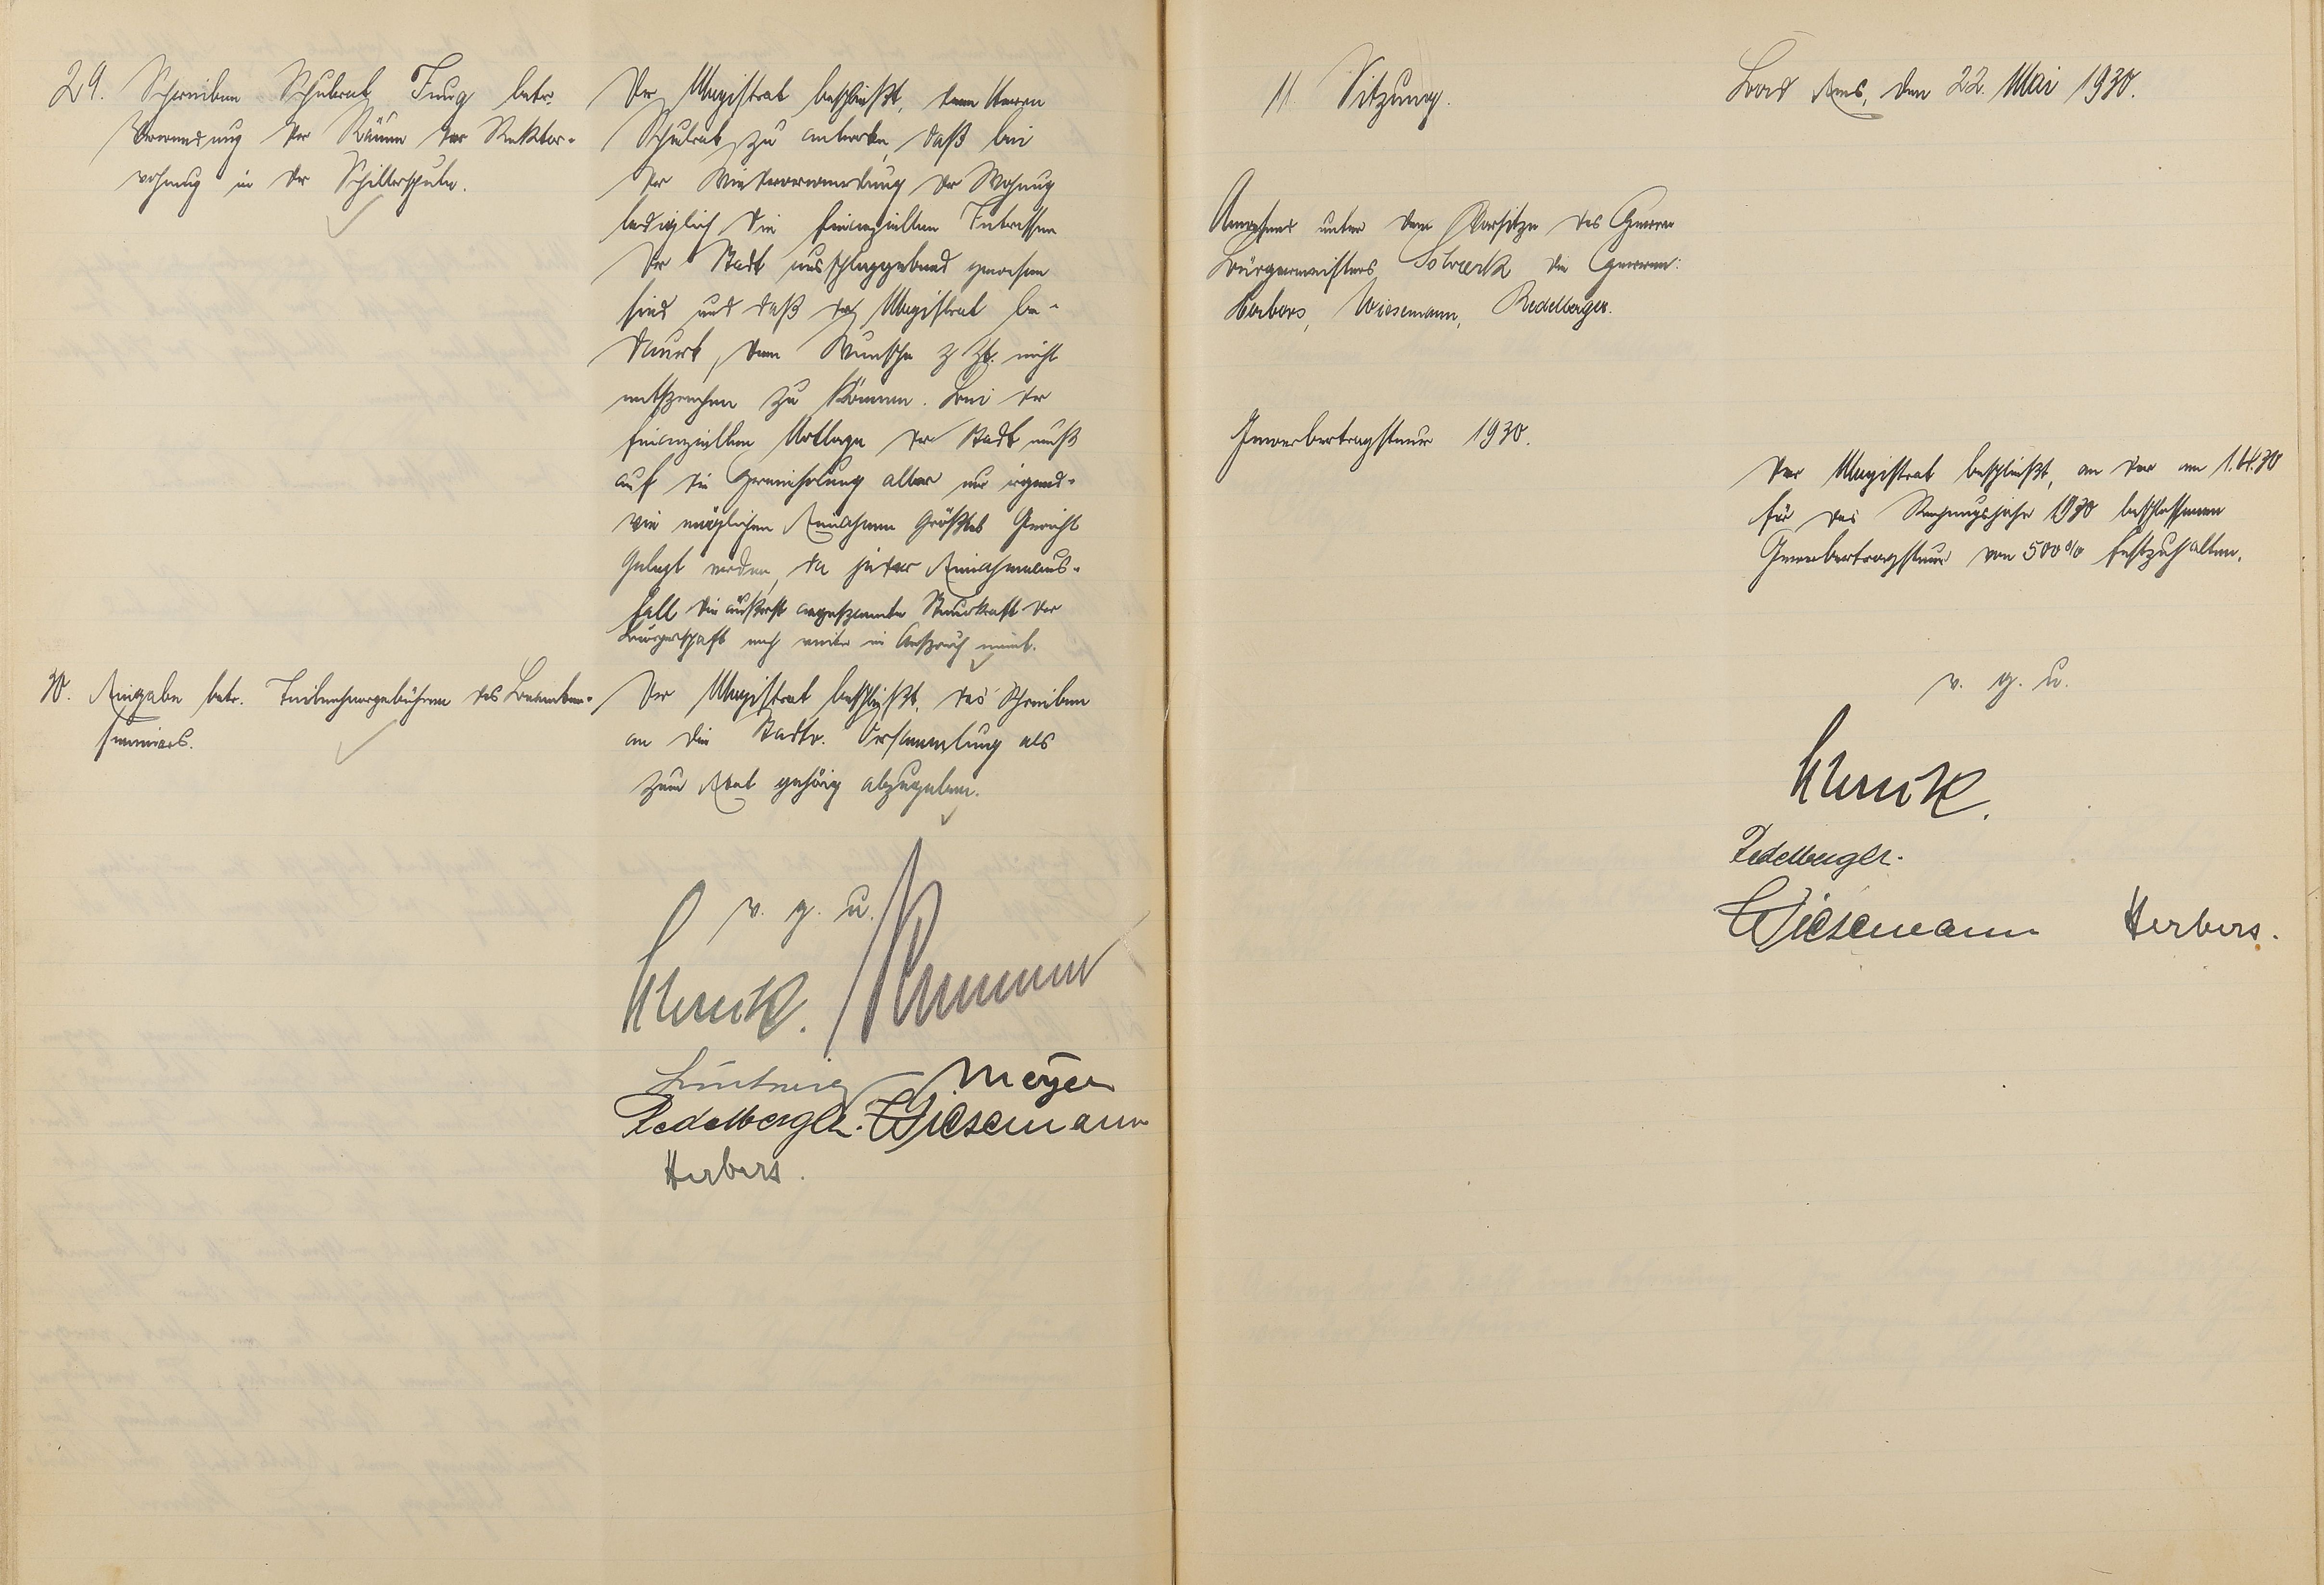 29. Schreiben Schulrat Jung betr.
Verwendung der Räume der Rektor-
wohnung in der Schillerschule.
Der Magistrat beschließt, dem Herrn
Schulrat zu antworten, daß bei
der Wiederverwendung der Wohnung
lediglich die finanziellen Interessen
der Stadt ausschlaggebend gewesen
sind und daß der Magistrat be-
dauert, dem Wunsche z. Zt. nicht
entsprechen zu können. Bei der
finanziellen Notlage der Stadt muß
auf die Hereinholung aller nur irgend-
wie möglichen Einnahmen größtes Gewicht
gelegt werden, da jeder Einnahmeaus-
fall die äußerst angespannte Steuerkraft der
Bürgerschaft noch weiter in Anspruch nimmt.
30. Eingabe betr. Teilnehmergebühren des Beamten-
seminars.
Der Magistrat beschließt, das Schreiben
an die Stadtv. Versammlung als
zum Etat gehörig abzugeben.
v. g. u.
Meyer
Redelberger. Wiesemann
Herbers.
11. Sitzung.
Bad Ems, den 22. Mai 1930.
Anwesend unter dem Vorsitze des Herrn
Bürgermeisters die Herren:
Herbers, Wiesemann, Redelberger.
Gewerbeertragsteuer 1930.
Der Magistrat beschließt, an der am 1.4.30
für das Rechnungsjahr 1930 beschlossenen
Gewerbeertragsteuer von 500% festzuhalten.
v. g. u.
Redelberger.
Wiesemann Herbers.